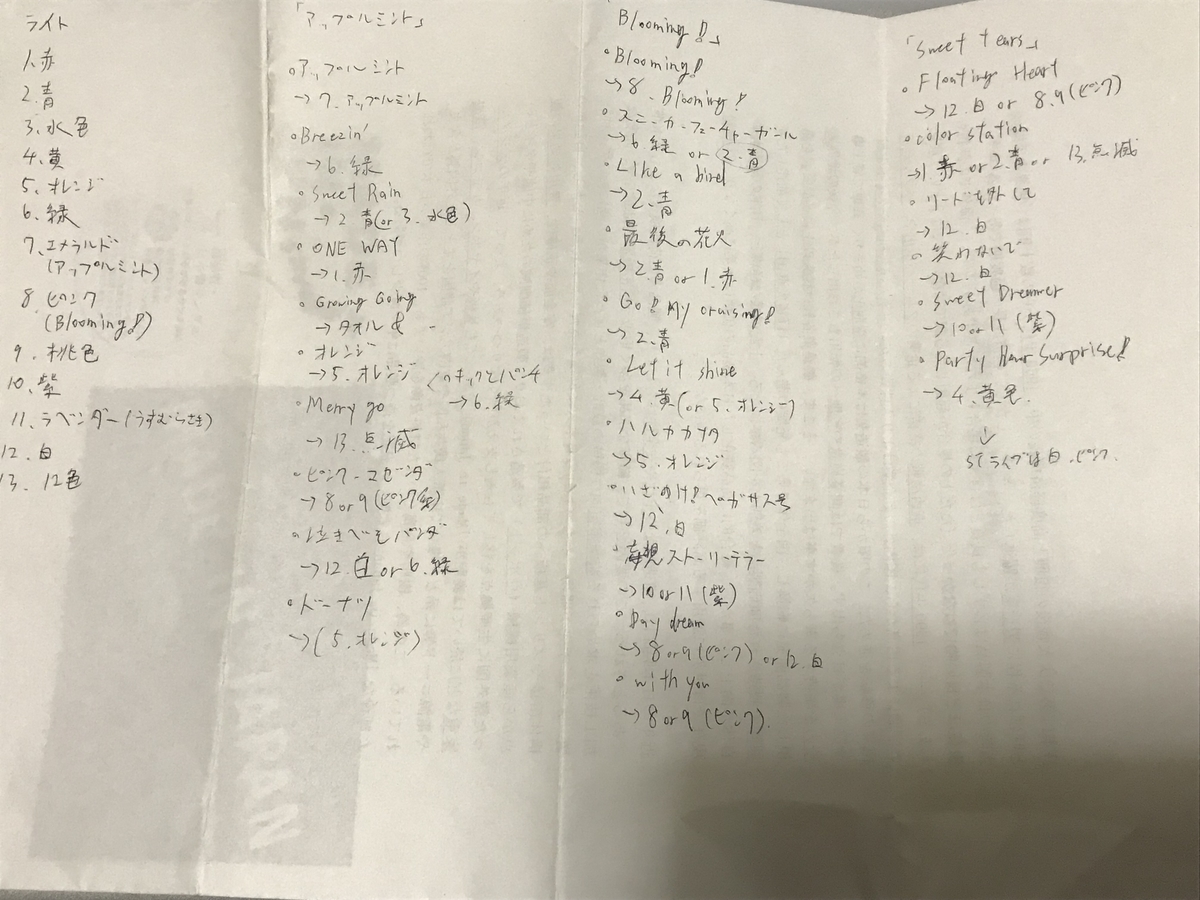 ライト
1.赤
2.青
3.水色
4.黄
5.オレンジ
6.緑
7.エメラルド
(アップルミント)
8.ピンク
(Blooming!)
9.桃色
10.紫
11.ラベンダー(うすむらさき)
12.白
13.12色
「アップルミント」
○アップルミント
→7.アップルミント
○Breezin'
→6.緑
○Sweet Rain
→2 青(or 3.水色)
○ONE WAY
→1.赤
○Growing Going
→タオル &
○オレンジ
→5.オレンジ
○Merry go
→13.点滅
くのキックとパンチ
→6.緑
○ピンク-マゼンダ
→8 or 9(ピンク系)
○泣きべそパンダ
→12.白 or 6.緑
○ドーナツ
→(5.オレンジ)
Blooming!」
○Blooming!
→8.Blooming!
○スニーカーフューチャーガール
→6.緑 or 2.青
○Like a bird
→2.青
○最後の花火
→2.青 or 1.赤
○Go! My cruising!
→2.青
○Let it shine
→4.黄(or 5.オレンジ)
○ハルカカナタ
→5.オレンジ
○いざゆけ!ペガサス号
→12.白
○妄想ストーリーテラー
→10 or 11(紫)
○Day dream
→8 or 9(ピンク) or 12.白
○with you
→8 or 9(ピンク).
「Sweet tears」
○Floating Heart
→12.白 or 8.9(ピンク)
○color station
→1 赤 or 2.青 or 13.点滅
○リードを外して
→12.白
○笑わないで
→12.白
○Sweet Dreamer
→10 or 11(紫)
○Party Hour Surprise!
→4.黄色.
↓
STライブは白.ピンク.